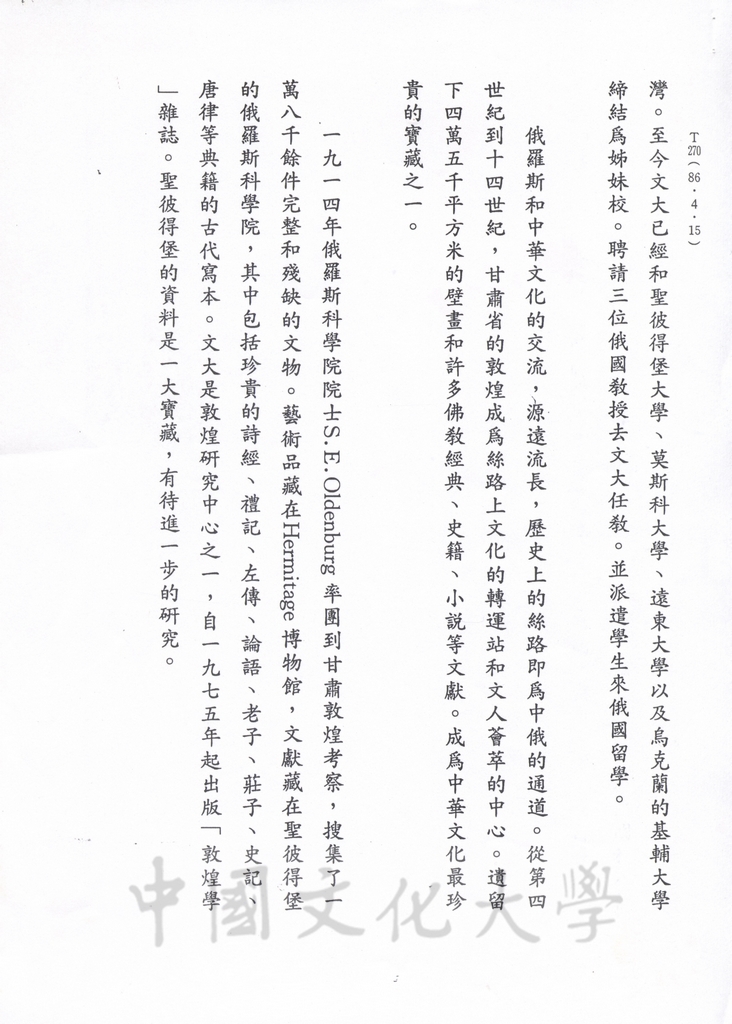 T270(86.4.15)
灣。至今文大已經和聖彼得堡大學、莫斯科大學、遠東大學以及烏克蘭的基輔大學
締結為姊妹校。聘請三位俄國教授去文大任教。並派遣學生來俄國留學。
俄羅斯和中華文化的交流，源遠流長，歷史上的絲路即為中俄的通道。從第四
世紀到十四世紀，甘肅省的敦煌成為絲路上文化的轉運站和文人薈萃的中心。遺留
下四萬五千平方米的壁畫和許多佛教經典、史籍、小說等文獻。成為中華文化最珍
貴的寶藏之一。
一九一四年俄羅斯科學院院士S.E.Oldenburg率團到甘肅敦煌考察，搜集了一
萬八千餘件完整和殘缺的文物。藝術品藏在Hermitage博物館，文獻藏在聖彼得堡
的俄羅斯科學院，其中包括珍貴的詩經、禮記、左傳、論語、老子、莊子、史記、
唐律等典籍的古代寫本。文大是敦煌研究中心之一，自一九七五年起出版「敦煌學
」雜誌。聖彼得堡的資料是一大寶藏，有待進一步的研究。
中國文化大學